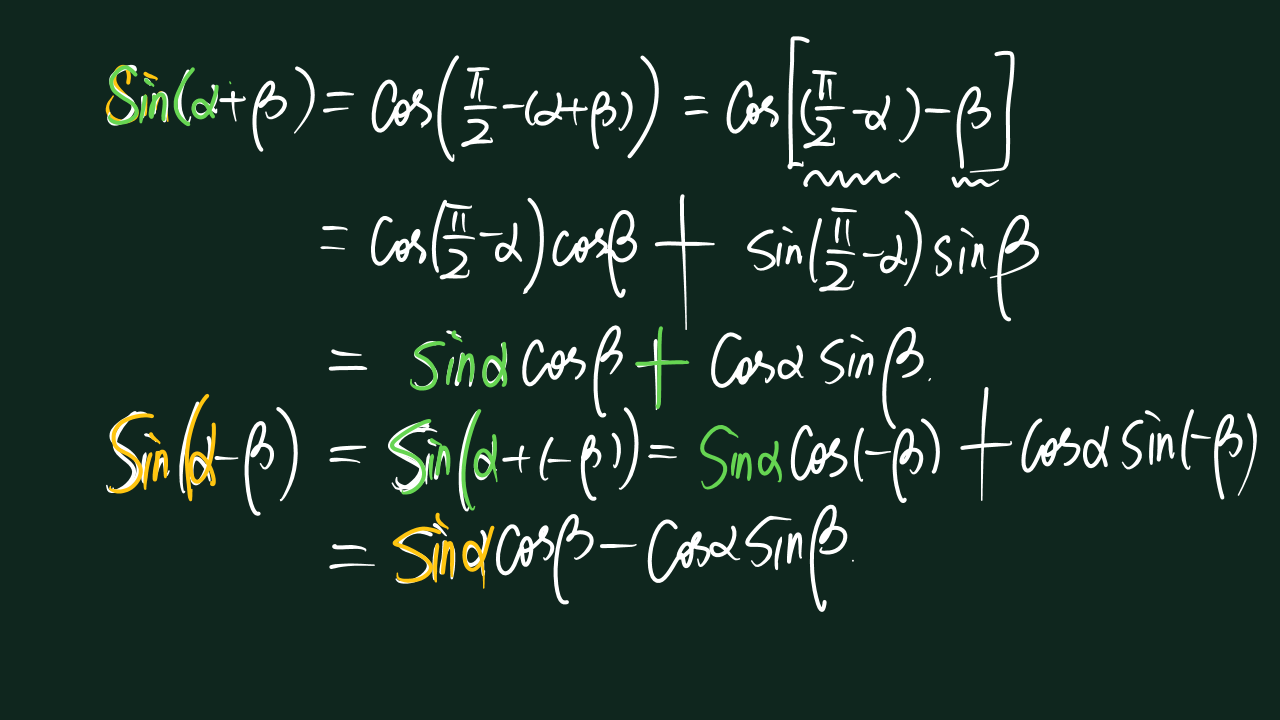 Sin(α+β) = Cos(π/2 -(α+β)) = Cos[(π/2 -α) - β]
= Cos(π/2 -α) cosβ + sin(π/2 -α) sinβ
= Sinα Cosβ + Cosα Sinβ.
Sin(α-β) = Sin(α+(-β)) = Sinα Cos(-β) + Cosα Sin(-β)
= Sinα Cosβ - Cosα Sinβ.